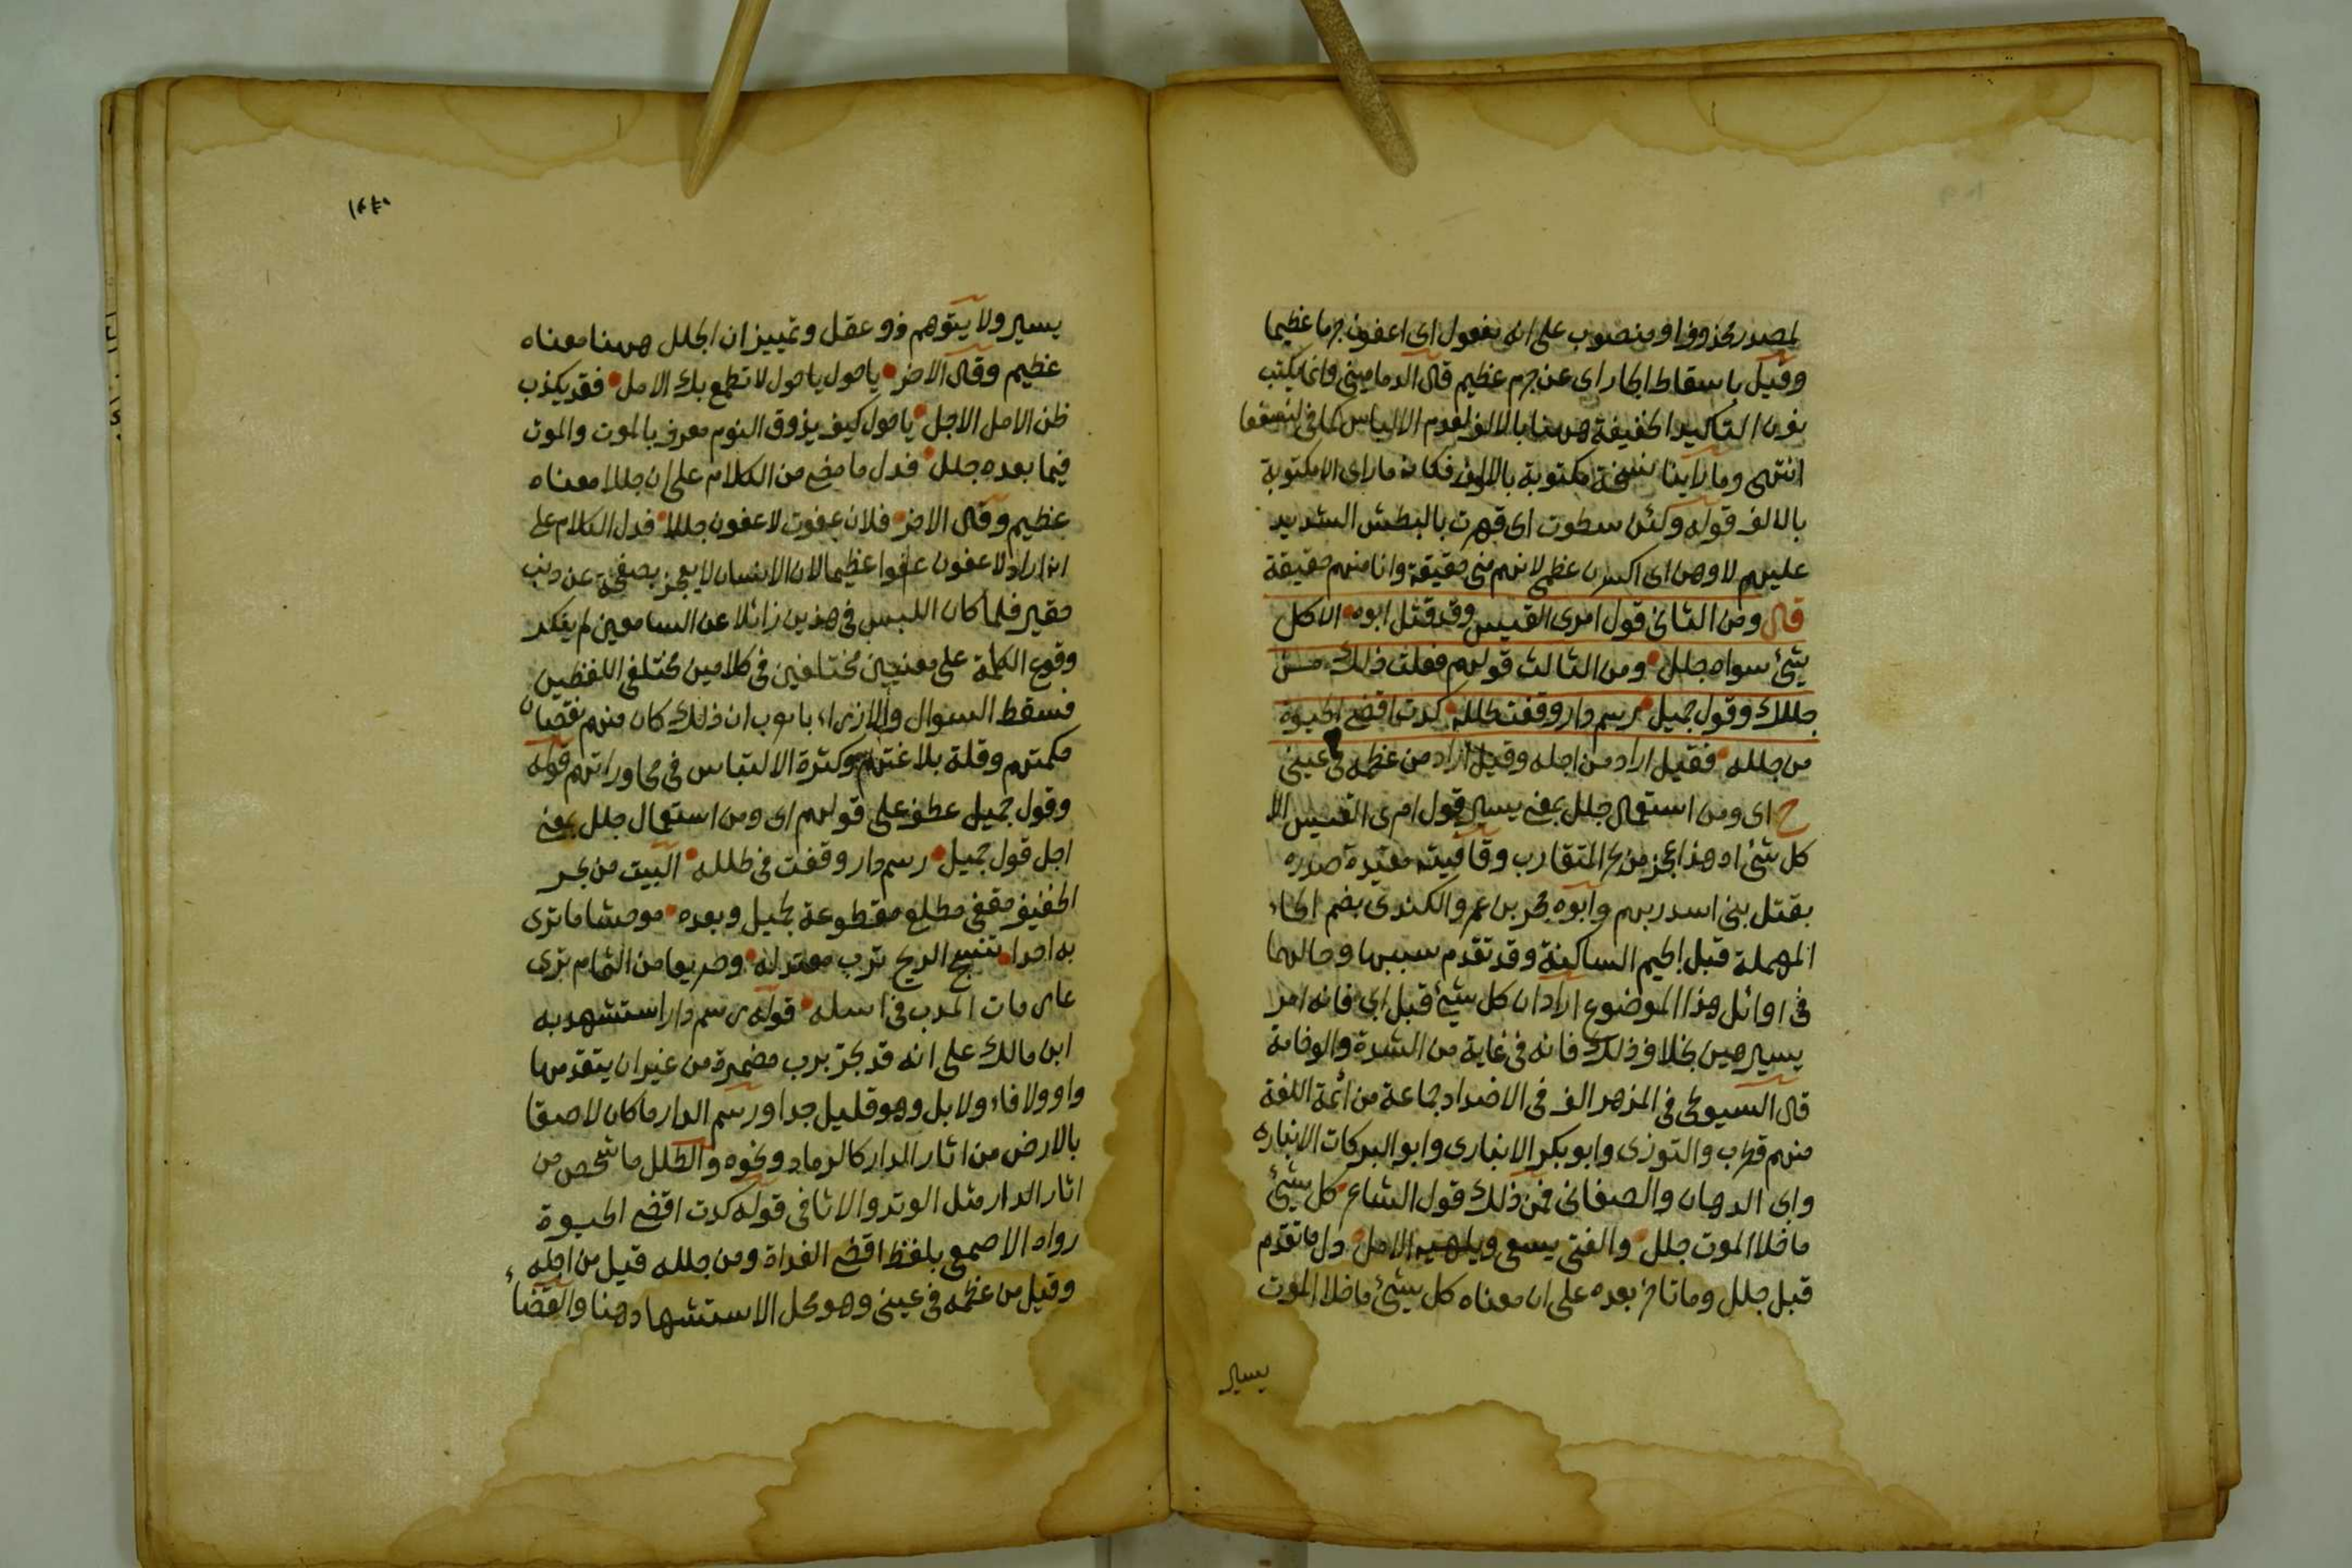 لمصدر محذوف او منصوب على انه مفعول اى اعفون جرما عظيما
وقيل باسقاط الجار اى عن جرم عظيم قال الدمامينى وانما يكتب
نون التاكيد الخفيفة ههنا بالالف لعدم الالباس كما فى لنسفعا
انتهى وما راينا نسخة مكتوبة بالالف فكانه ما راى الا مكتوبة
بالالف قوله ولئن سطوت اى قهرت بالبطش الشديد
عليهم لاوهن اى اكسرن عظمى لانهم منى حقيقة وانا منهم حقيقة
قال ومن الثانى قول امرى القيس وقد قتل ابوه الا كل
شئ سواه جلل ومن الثالث قولهم فعلت ذلك من
جللك وقول جميل رسم دار وقفت فى طلله كدت اقضى الحيوة
من جلله فقيل اراد من اجله وقيل اراد من عظمه فى عينى
ح اى ومن استعمال جلل بمعنى يسير قول امرى القيس الا
كل شئ اه هذا عجز من المتقارب وقافيته مقيدة صدره
بقتل بنى اسد ربهم وابوه حجر بن عمرو الكندى بضم الحاء
المهملة قبل الجيم الساكنة وقد تقدم سببها وحالهما
فى اوائل هذا الموضوع اراد ان كل شئ قبل ابى فانه امر
يسير هين بخلاف ذلك فانه فى غاية من الشدة والوخامة
قال السيوطى فى المزهر الف فى الاضداد جماعة من ائمة اللغة
منهم قطرب والتوزى وابو بكر الانبارى وابو البركات الانبارى
واى الدهان والصغانى فمن ذلك قول الشاعر كل شئ
ما خلا الموت جلل والفتى يسعى ويلهيه الامل دل ما تقدم
قبل جلل وما تاخر بعده على ان معناه كل شئ ما خلا الموت
يسير
يسير ولا يتوهم ذو عقل وتمييز ان الجلل ههنا معناه
عظيم وقال الاخر ياخول ياخول لا تطمع بك الامل فقد يكذب
ظن الامل الاجل ياخول كيف يذوق النوم معرف بالموت والموت
فيما بعده جلل فدل ما مضى من الكلام على ان جللا معناه
عظيم وقال الاخر فلان عفوت لاعفون جللا فدل الكلام على
انه اراد لاعفون عفوا عظيما لان الانسان لا يفخر بصفحه عن ذنب
حقير فلما كان اللبس فى هذين زائلا عن السامعين لم ينكر
وقوع الكلمة على معنيين مختلفين فى كلامين مختلفى اللفظين
فسقط السوال والازراء بالعرب ان ذلك كان منهم نقصان
حكمتهم وقلة بلاغتهم وكثرة الالتباس فى محاوراتهم قوله
وقول جميل عطف على قولهم اى ومن استعمال جلل بمعنى
اجل قول جميل رسم دار وقفت فى طلله البيت من بحر
الخفيف مقفى مطلع مقطوعة لجميل وبعده موحشا ما ترى
به احدا تنسج الريح ترب معتدله وصريعا من الثمام ترى
عارمات المدب فى اسله قوله رسم دار استشهد به
ابن مالك على انه قد يجر برب مضمرة من غير ان يتقدمها
واو ولا فاء ولا بل وهو قليل جدا ورسم الدار ما كان لاصقا
بالارض من اثار الدار كالرماد ونحوه والطلل ما شخص من
اثار الدار مثل الوتد والاثافى قوله كدت اقضى الحيوة
رواه الاصمعى بلفظ اقضى الغداة ومن جلله قيل من اجله
وقيل من عظمه فى عينى وهو محل الاستشهاد هنا والقضاء